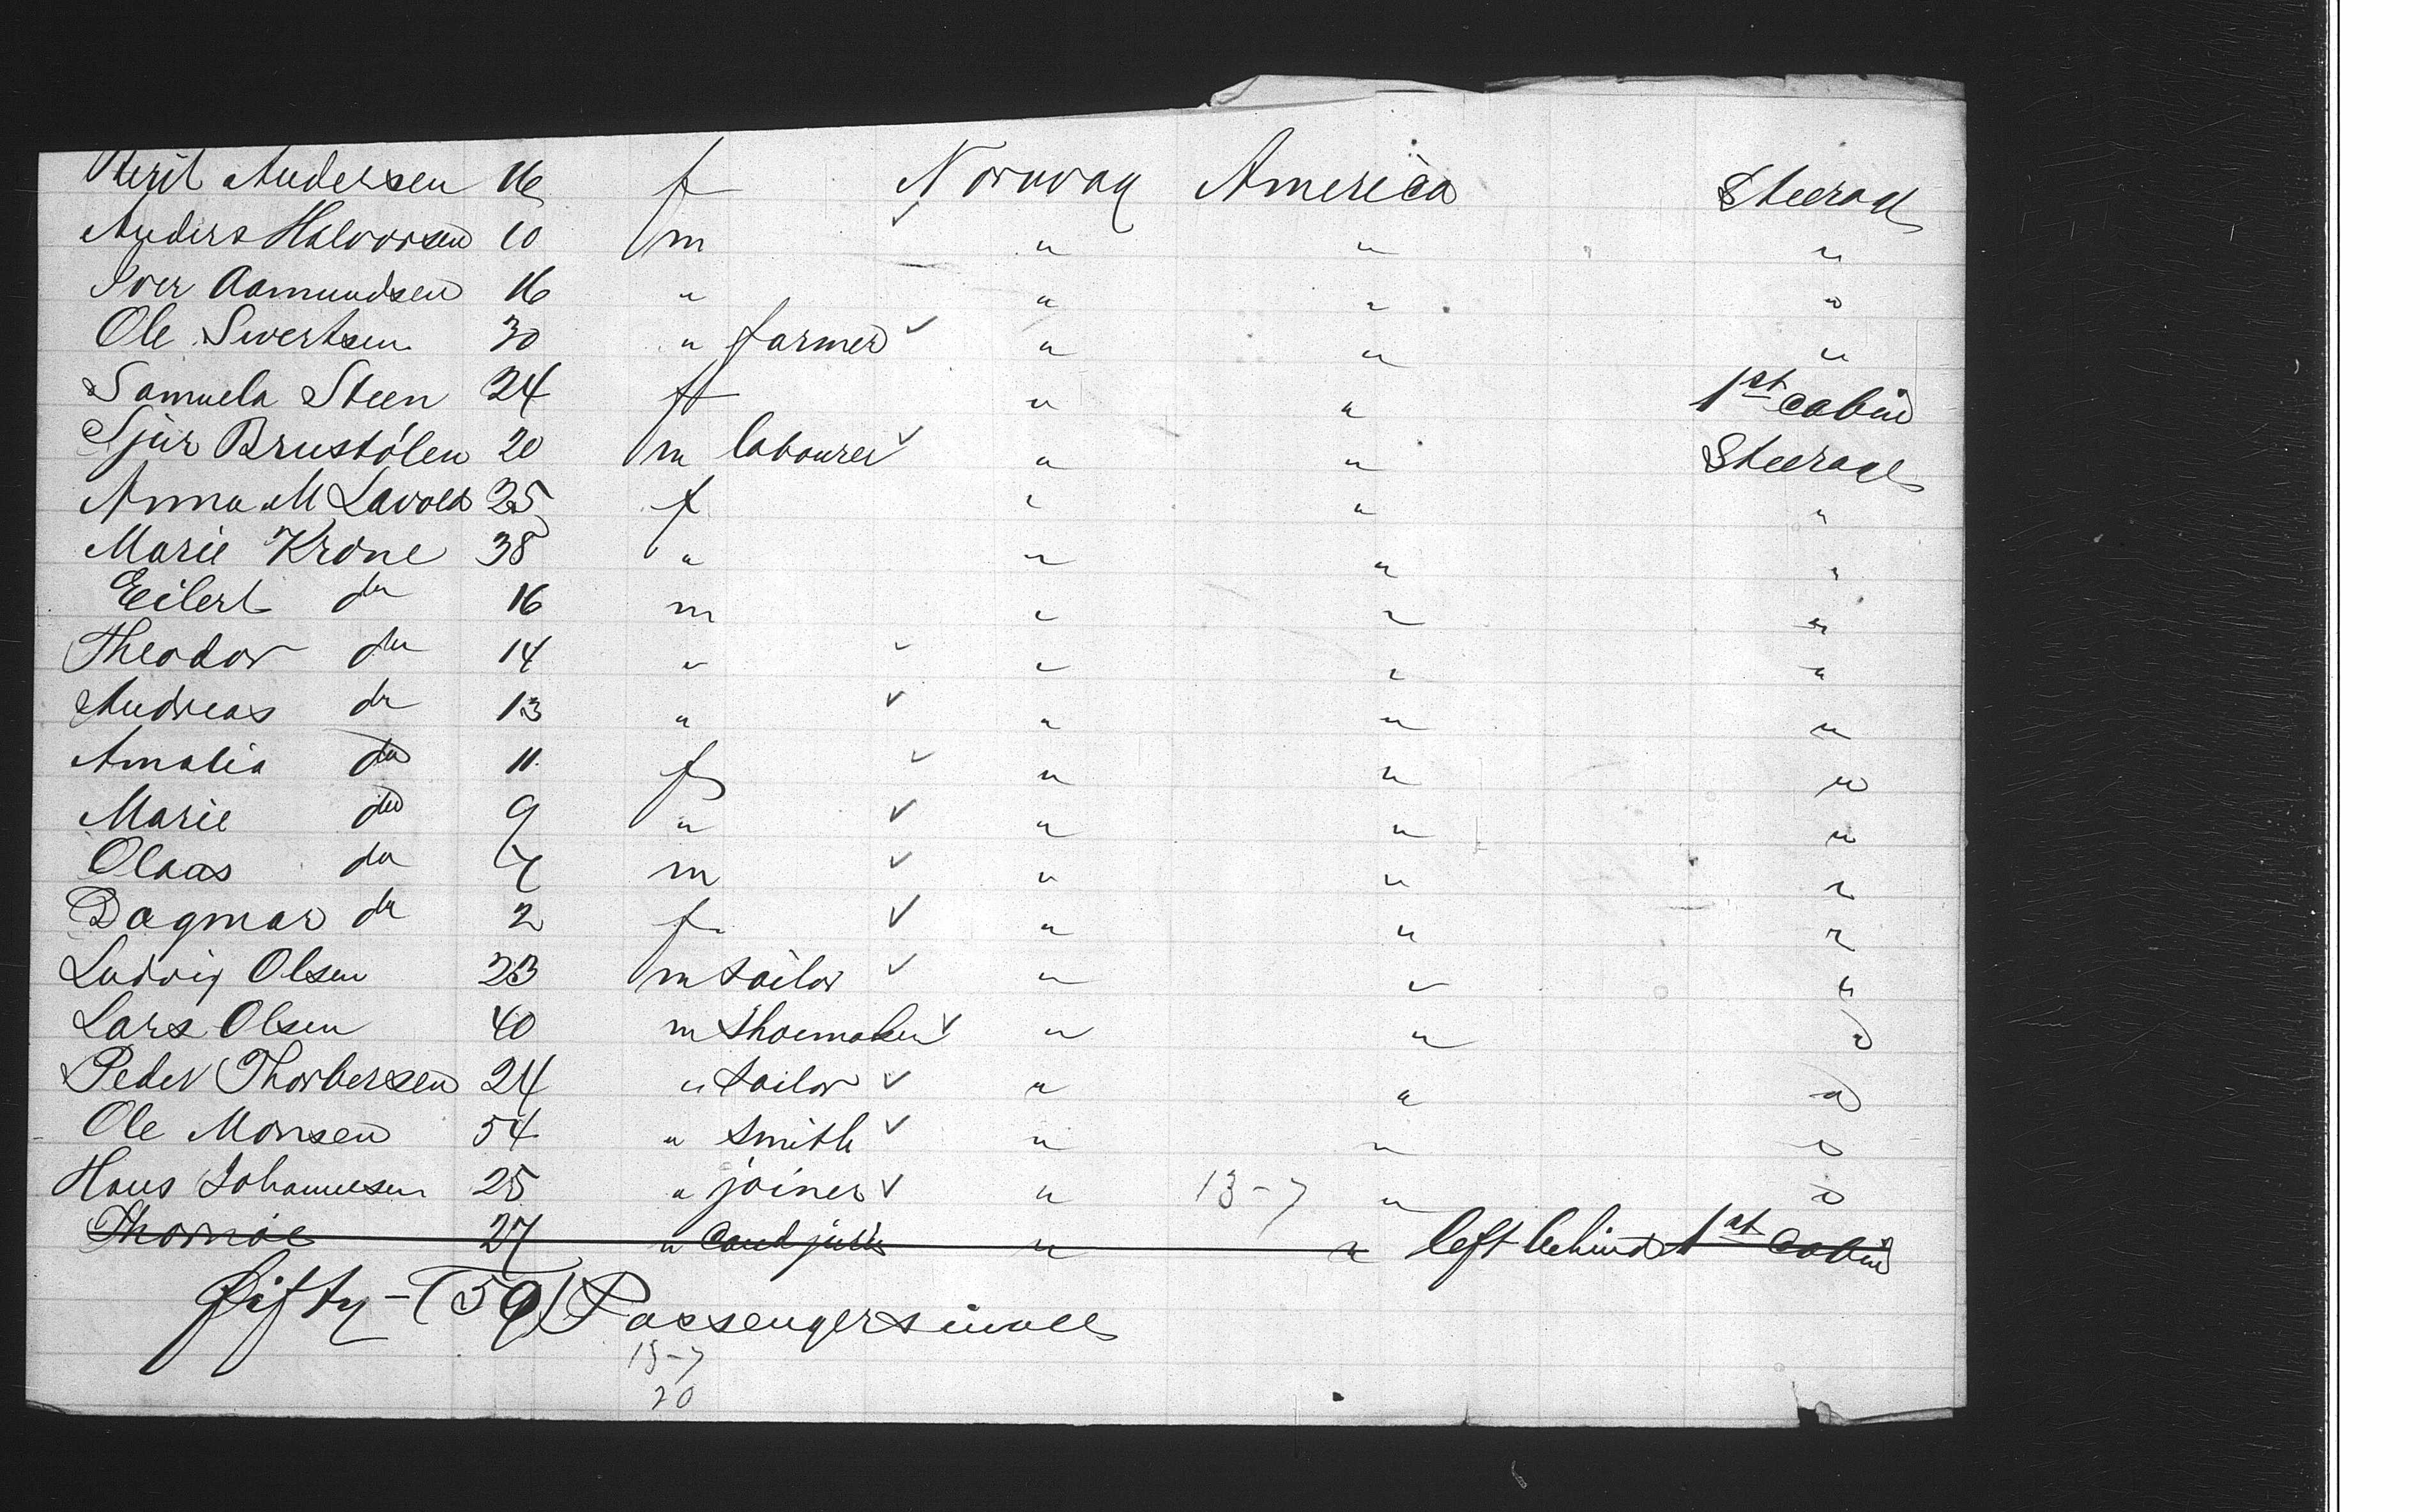 Andersen 16 f Norway America Steerage
Anders Halvorsen 10 m " " "
Iver Aamundsen 16 " " " "
Ole Sivertsen 30 " farmer ✓ " " "
Samuela Steen 24 f " " 1st Cabin
Sjur Brustölen 20 m labourer ✓ " " Steerage
Anna M Lavold 25 f " " "
Marie Krone 38 " " " "
Eilert do 16 m " " "
Theodor do 14 " ✓ " " "
Andreas do 13 " ✓ " " "
Amalia do 11 f ✓ " " "
Marie do 9 " ✓ " " "
Olaas do 7 m ✓ " " "
Dagmar do 2 f ✓ " " "
Ludvig Olsen 23 m ✓ " " "
Lars Olsen 40 m Shoemaker ✓ " " "
Peder Thorbersen 24 " ✓ " " "
Ole Monsen 54 " Smith ✓ " " "
Hans Johannesen 25 " joiner ✓ " 13-7 " "
27 " Cand juris " " left behind 1st Cabin
fifty-(59) Passengers in all
13-7
20